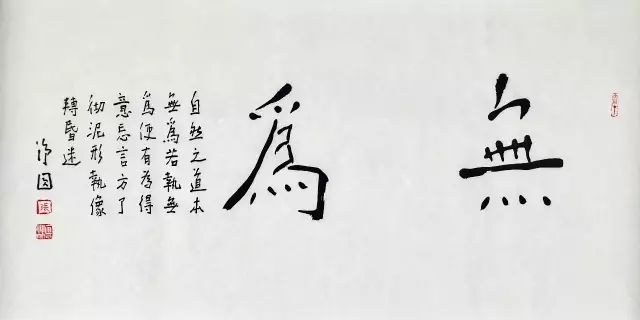 無爲
自然之道本
無爲若執無
爲便有為得
意忘言方了
彻泥形執像
轉昏迷
净因